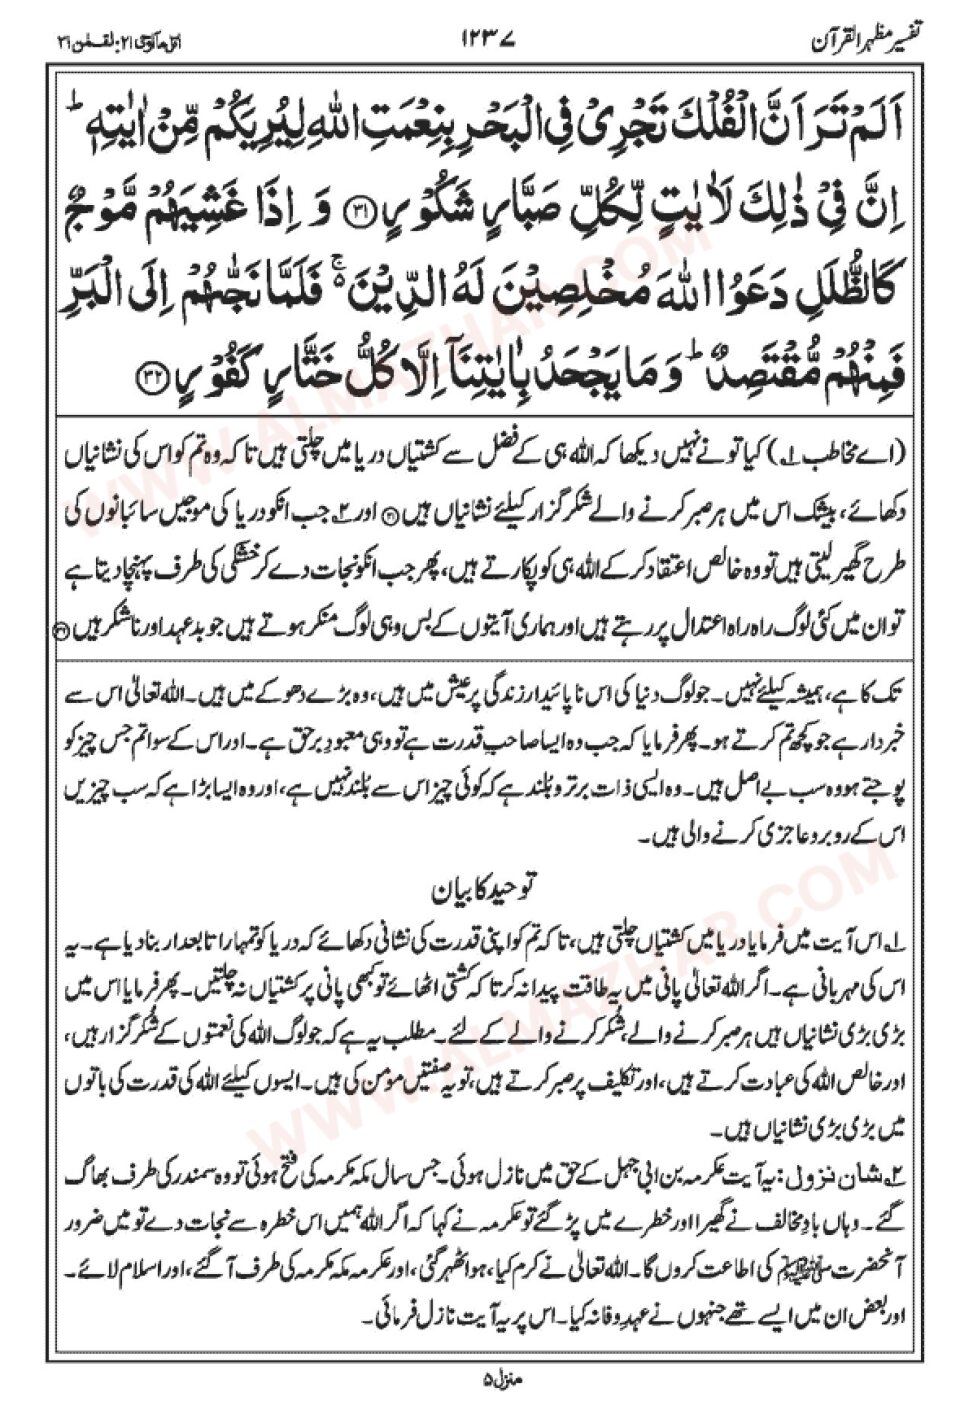 تفسیر مظہر القرآن
۱۲۳۷
اتل ماۤ اوحی ۲۱: لقمٰن ۳۱
اَلَمْ تَرَ اَنَّ الْفُلْكَ تَجْرِیْ فِی الْبَحْرِ بِنِعْمَتِ اللّٰهِ لِیُرِیَكُمْ مِّنْ اٰیٰتِهٖ ؕ
اِنَّ فِیْ ذٰلِكَ لَاٰیٰتٍ لِّكُلِّ صَبَّارٍ شَكُوْرٍ ﴿۳۱﴾ وَ اِذَا غَشِیَهُمْ مَّوْجٌ
كَالظُّلَلِ دَعَوُا اللّٰهَ مُخْلِصِیْنَ لَهُ الدِّیْنَ ۚ۬ فَلَمَّا نَجّٰىهُمْ اِلَی الْبَرِّ
فَمِنْهُمْ مُّقْتَصِدٌ ؕ وَ مَا یَجْحَدُ بِاٰیٰتِنَاۤ اِلَّا كُلُّ خَتَّارٍ كَفُوْرٍ ﴿۳۲﴾
(اے مخاطب ۱؎) کیا تو نے نہیں دیکھا کہ اللہ ہی کے فضل سے کشتیاں دریا میں چلتی ہیں تاکہ وہ تم کو اس کی نشانیاں
دکھائے، بیشک اس میں ہر صبر کرنے والے شکر گزار کیلئے نشانیاں ہیں ﴿۳۱﴾ اور ۲؎ جب انکو دریا کی موجیں سائبانوں کی
طرح گھیر لیتی ہیں تو وہ خالص اعتقاد کر کے اللہ ہی کو پکارتے ہیں، پھر جب انکو نجات دے کر خشکی کی طرف پہنچا دیتا ہے
تو ان میں کئی لوگ راہ راہ اعتدال پر رہتے ہیں اور ہماری آیتوں کے بس وہی لوگ منکر ہوتے ہیں جو بدعہد اور ناشکر ہیں ﴿۳۲﴾
تک کا ہے، ہمیشہ کیلئے نہیں۔ جو لوگ دنیا کی اس ناپائیدار زندگی پر عیش میں ہیں، وہ بڑے دھوکے میں ہیں۔ اللہ تعالیٰ اس سے
خبردار ہے جو کچھ تم کرتے ہو۔ پھر فرمایا کہ جب وہ ایسا صاحبِ قدرت ہے تو وہی معبودِ برحق ہے۔ اور اس کے سوا تم جس چیز کو
پوجتے ہو وہ سب بے اصل ہیں۔ وہ ایسی ذات برتر و بلند ہے کہ کوئی چیز اس سے بلند نہیں ہے، اور وہ ایسا بڑا ہے کہ سب چیزیں
اس کے روبرو عاجزی کرنے والی ہیں۔
توحید کا بیان
۱؎ اس آیت میں فرمایا دریا میں کشتیاں چلتی ہیں، تاکہ تم کو اپنی قدرت کی نشانی دکھائے کہ دریا کو تمہارا تابعدار بنا دیا ہے۔ یہ
اس کی مہربانی ہے۔ اگر اللہ تعالیٰ پانی میں یہ طاقت پیدا نہ کرتا کہ کشتی اٹھائے تو کبھی پانی پر کشتیاں نہ چلتیں۔ پھر فرمایا اس میں
بڑی بڑی نشانیاں ہیں ہر صبر کرنے والے، شُکر کرنے والے کے لئے۔ مطلب یہ ہے کہ جو لوگ اللہ کی نعمتوں کے شکر گزار ہیں،
اور خالص اللہ کی عبادت کرتے ہیں، اور تکلیف پر صبر کرتے ہیں، تو یہ صفتیں مؤمن کی ہیں۔ ایسوں کیلئے اللہ کی قدرت کی باتوں
میں بڑی بڑی نشانیاں ہیں۔
۲؎ شان نزول: یہ آیت عکرمہ بن ابی جہل کے حق میں نازل ہوئی۔ جس سال مکہ مکرمہ کی فتح ہوئی تو وہ سمندر کی طرف بھاگ
گئے۔ وہاں بادِ مخالف نے گھیرا اور خطرے میں پڑ گئے تو عکرمہ نے کہا کہ اگر اللہ ہمیں اس خطرہ سے نجات دے تو میں ضرور
آنحضرت ﷺ کی اطاعت کروں گا۔ اللہ تعالیٰ نے کرم کیا، ہوا ٹھہر گئی، اور عکرمہ مکہ مکرمہ کی طرف آ گئے، اور اسلام لائے۔
اور بعض ان میں ایسے تھے جنہوں نے عہد وفا نہ کیا۔ اس پر یہ آیت نازل فرمائی۔
منزل ۵
WWW.ALMAZHAR.COM
WWW.ALMAZHAR.COM